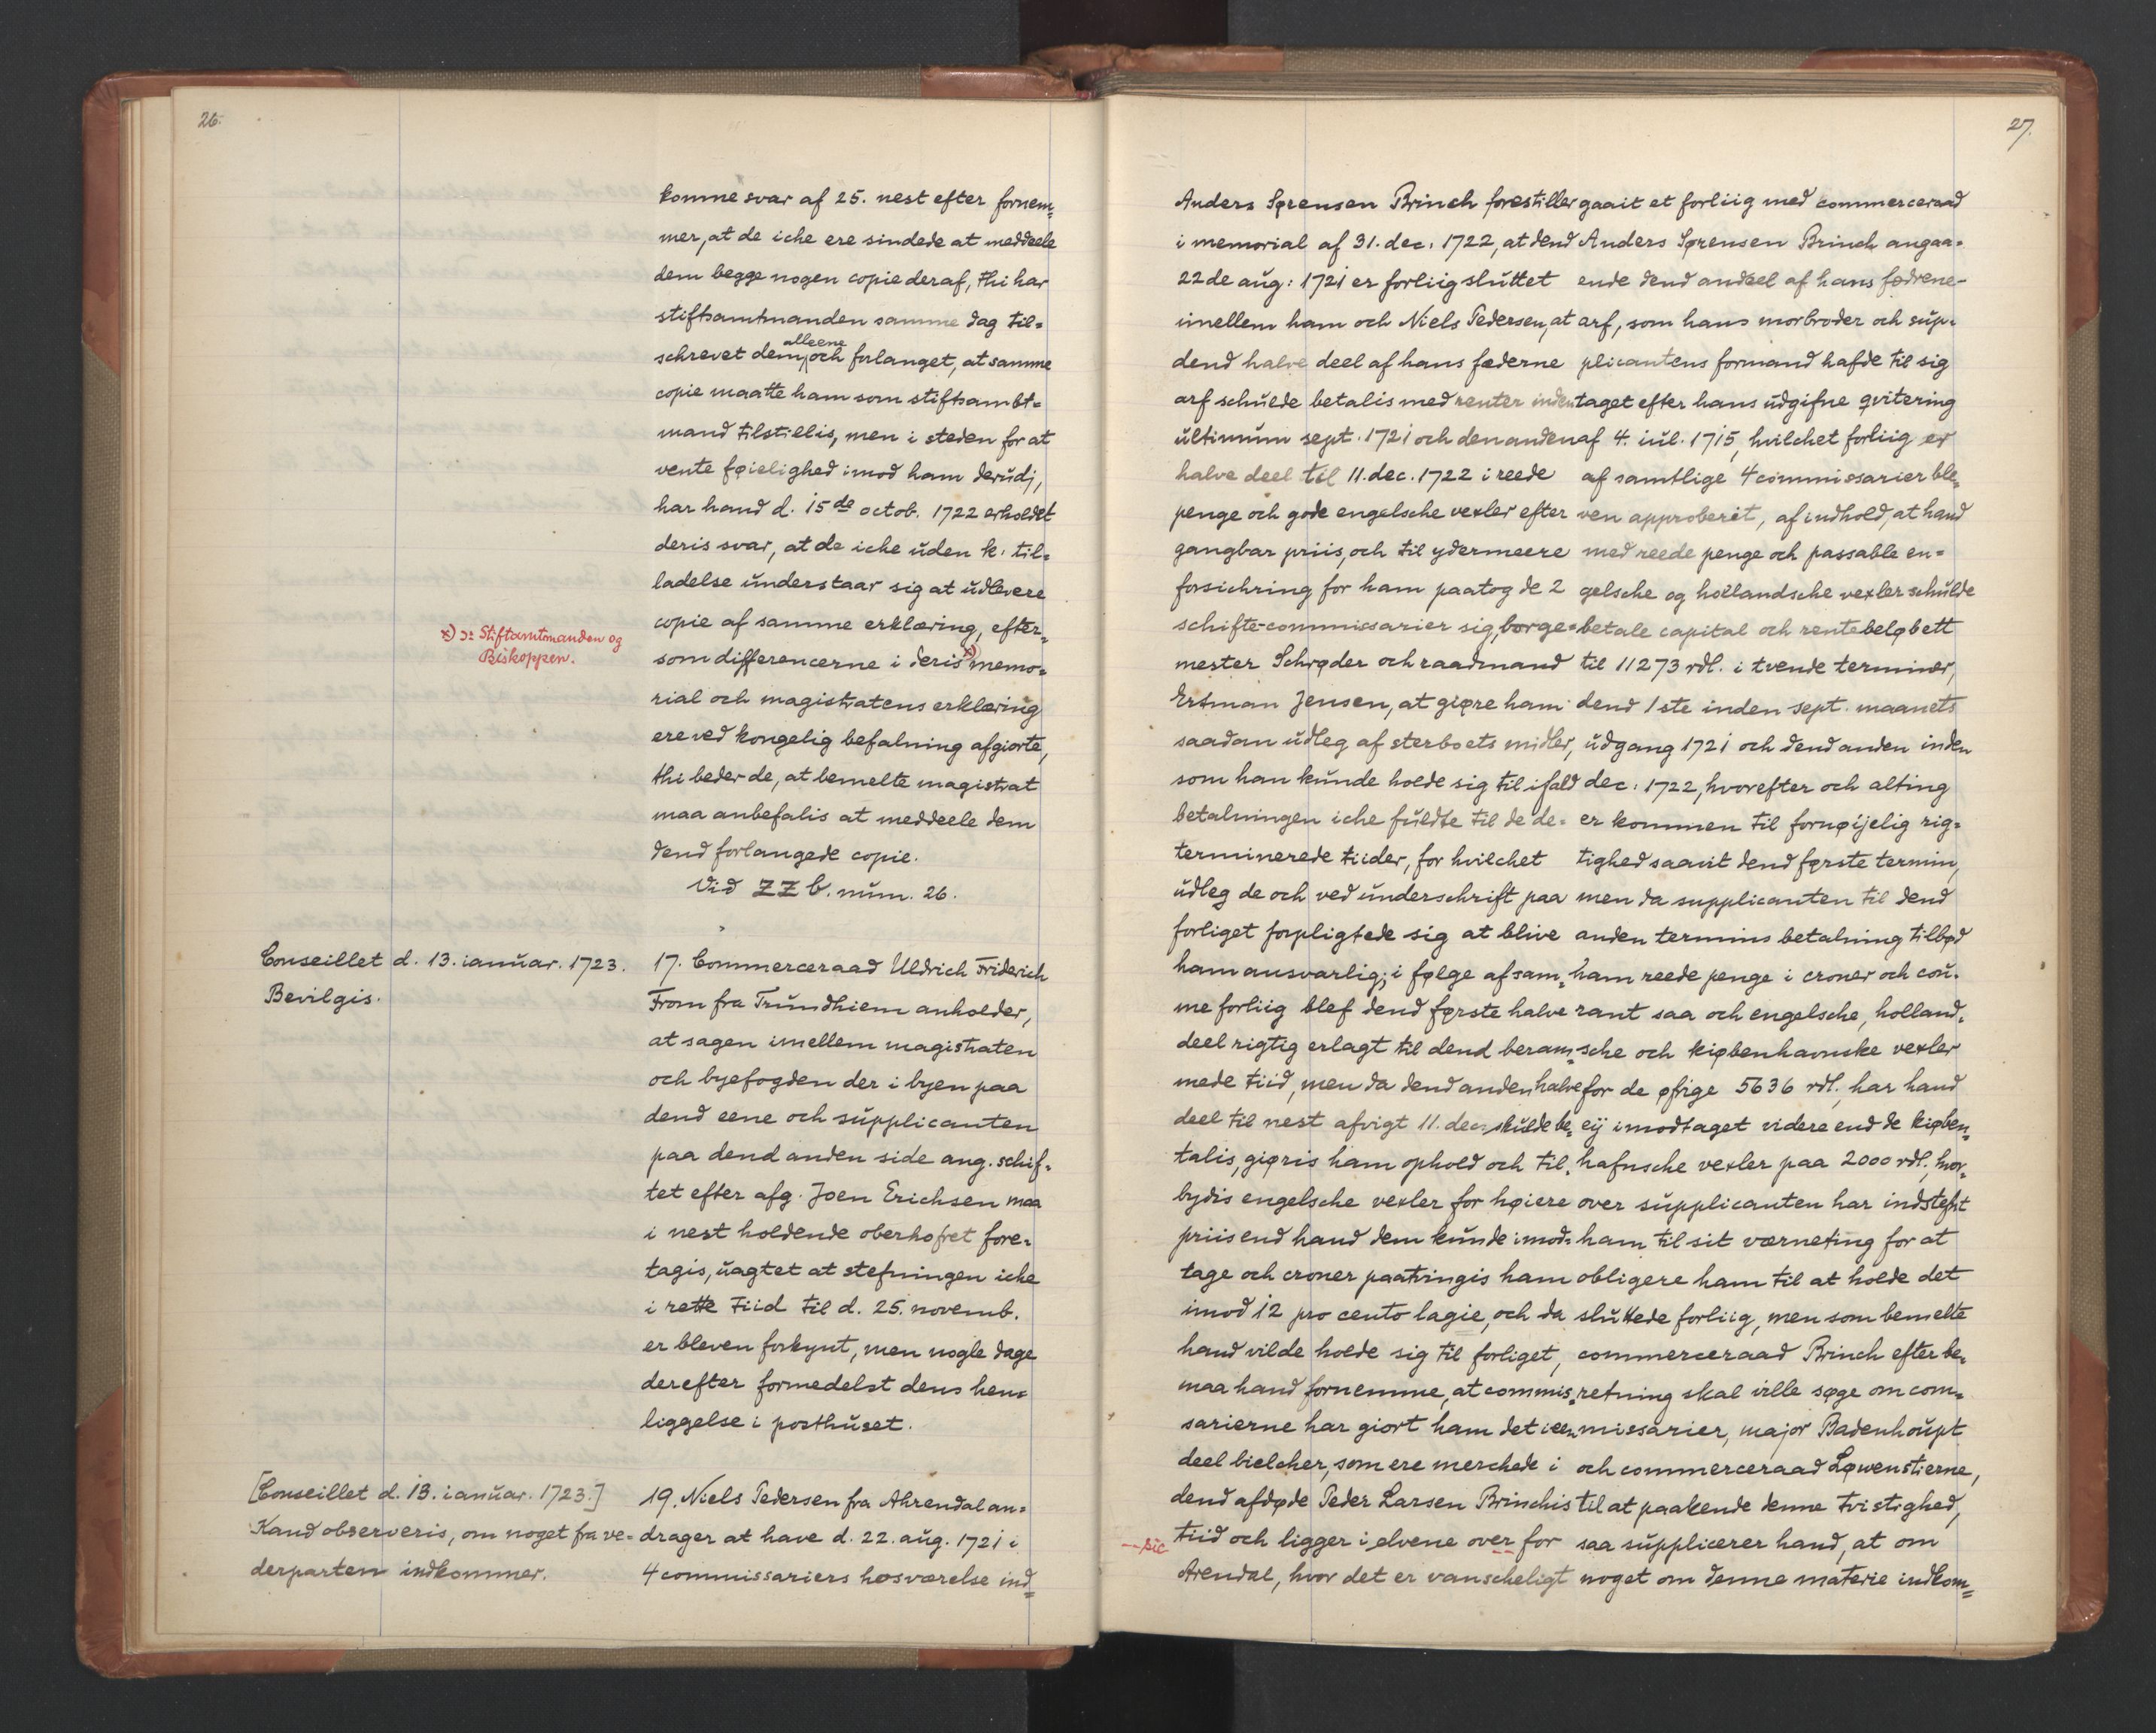 26.
komme svar af 25. nest efter fornem=
mer, at de iche ere sindede at meddeele
dem begge nogen copie deraf, thi har
stiftsamtmanden samme dag til=
alleene
schrevet dem, och forlanget, at samme
copie maatte ham som stiftsambt=
mand tilstillis, men i steden for at
vente føielighed imod ham derudj,
har hand d. 15de octob. 1722 erholdet
deris svar, at de iche uden k: til=
ladelse understaar sig at udlevere
copie af samme erklæring, efter=
som differencerne i deris x) memo=
rial och magistratens erklæring
ere ved kongelig befalning afgiorte,
thi beder de, at bemelte magistrat
maa anbefalis at meddeele dem
dend forlangede copie.
Vid ZZ b. num. 26.
x) ɔ: Stiftamtmanden og
Biskoppen.
Conseillet d. 13. ianuar. 1723.
Bevilgis.
17. Commerceraad Uldrich Friderich
From fra Trundhiem anholder,
at sagen imellem magistraten
och byefogden der i byen paa
dend eene och supplicanten
paa dend anden side ang. schif=
tet efter afg. Joen Erichsen maa
i nest holdende oberhofret fore=
tagis, uagtet at stefningen iche
i rette tiid til d. 25. novemb.
er bleven forkynt, men nogle dage
derefter formedelst dens hen=
liggelse i posthuset.
[Conseillet d. 13. ianuar. 1723.]
Kand observeris, om noget fra ve=
derparten indkommer.
19. Niels Pedersen fra Ahrendal an=
drager at have d. 22. aug. 1721 i
4 commissariers hosværelse ind=
27.
Anders Sørensen Brinch forestiller
i memorial af 31. dec. 1722, at dend
22de aug: 1721 er forliig sluttet
imellem ham och Niels Pedersen, at
dend halve deel af hans fæderne
arf schulde betalis med renter inden
ultimum sept. 1721 och den anden
halve deel til 11. dec. 1722 i reede
penge och gode engelsche vexler efter
gangbar priis, och til ydermeere
forsichring for ham paatog de 2
schifte-commissarier sig, borge=
mester Schrøder och raadmand
Ertman Jensen, at giøre ham
saadan udleg af sterboets midler,
som han kunde holde sig til ifald
betalningen iche fuldte til de de=
terminerede tiider, for hvilchet
udleg de och ved underschrift paa
forliget forpligtede sig at blive
ham ansvarlig; i følge af sam=
me forliig blef dend første halve
deel rigtig erlagt til dend beram=
mede tiid, men da dend anden halve
deel til nest afvigt 11. dec. skulde be=
talis, giøris ham ophold och til=
bydis engelsche vexler for høiere
priis end hand dem kunde imod=
tage och croner paatvingis ham
imod 12 pro cento lagie, och da
hand vilde holde sig til forliget,
maa hand fornemme, at commis=
sarierne har giort ham det i een
deel bielcher, som ere merchede i
dend afdøde Peder Larsen Brinchis
tiid och ligger i elvene over for
-- sic
Arendal, hvor det er vanscheligt
gaait et forliig med commerceraad
Anders Sørensen Brinch angaa=
ende dend andeel af hans fædrene-
arf, som hans morbroder och sup=
plicantens formand hafde til sig
taget efter hans udgifne qvitering
af 4. iul. 1715, hvilchet forliig er
af samtlige 4 commissarier ble=
ven approberet, af indhold, at hand
med reede penge och passable en=
gelsche og hollandsche vexler schulde
betale capital och rente beløbett
til 11273 rdl. i tvende terminer,
dend 1ste inden sept. maanets
udgang 1721 och dend anden inden
dec: 1722, hvorefter och alting
er kommen til fornøijelig rig=
tighed saavit dend første termin,
men da supplicanten til dend
anden termins betalning tilbød
ham reede penge i croner och cou=
rant saa och engelsche, holland=
sche och kiøbenhavnske vexler
for de øfrige 5636 rdl., har hand
eij imodtaget videre end de kiøben=
hafnsche vexler paa 2000 rdl., hvor=
over supplicanten har indstefnt
ham til sit værneting for at
obligere ham til at holde det
sluttede forliig, men som bemelte
commerceraad Brinch efter be=
retning skal ville søge om com=
missarier, major Badenhoupt
och commerceraad Løwenstierne,
til at paakende denne tvistighed,
saa supplicerer hand, at om
noget om denne materie indkom=